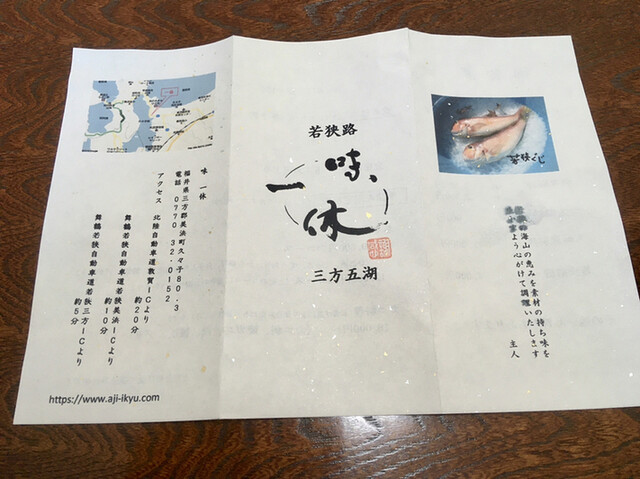 若狭くじ
海山の恵みを素材の持ち味を
よう心がけて調理いたします
主人
若狭路
味
一休
三方五湖
味 一休
福井県三方郡美浜町久々子80.3
電話 0770 32-0152
アクセス 北陸自動車道敦賀ICより
約20分
舞鶴若狭自動車道若狭美浜ICより
約10分
舞鶴若狭自動車道若狭三方ICより
約5分
https://www.aji-ikyu.com